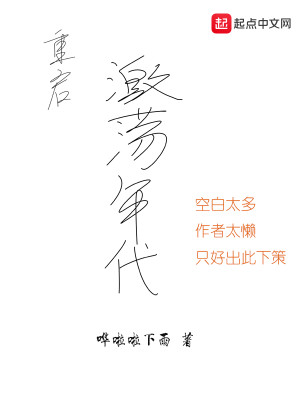 起点中文网
重启
激荡年代
空白太多
作者太懒
只好出此下策
哗啦啦下雨 著